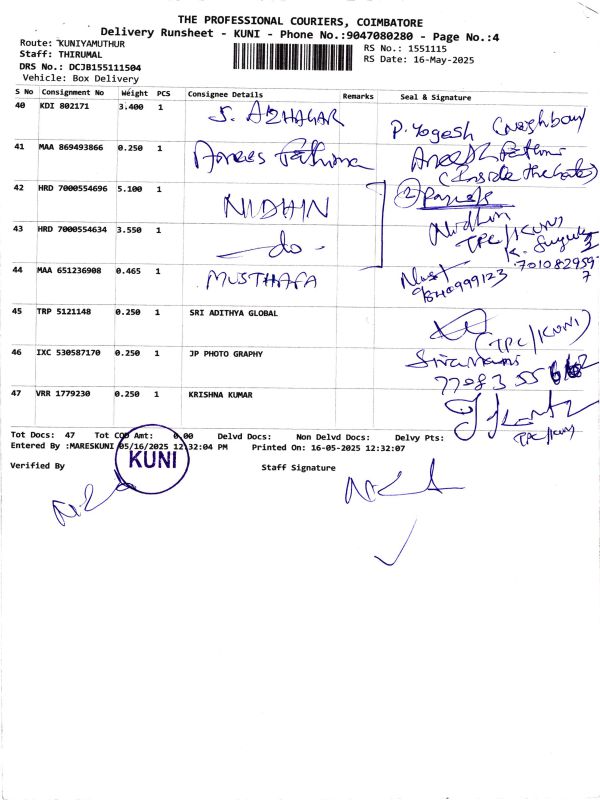 THE PROFESSIONAL COURIERS, COIMBATORE
Delivery Runsheet - KUNI - Phone No.:9047080280 - Page No.:4
Route: KUNIYAMUTHUR
RS No.: 1551115
Staff: THIRUMAL
RS Date: 16-May-2025
DRS No.: DCJB155111504
Vehicle: Box Delivery
S No Consignment No Weight PCS Consignee Details Remarks Seal & Signature
40 KDI 802171 3.400 1 S. AZHAGAR P. Yogesh (Neighbour)
41 MAA 869493866 0.250 1 Anees Fathima Anees Fathima
(Inside the Gate)
42 HRD 7000554696 5.100 1 NIDHIN 2 Parcels
Nidhin
TPC/KUNI
43 HRD 7000554634 3.550 1 - do -
44 MAA 651236908 0.465 1 MUSTHAFA
9840999123
45 TRP 5121148 0.250 1 SRI ADITHYA GLOBAL (TPC/KUNI)
46 IXC 530587170 0.250 1 JP PHOTO GRAPHY Sivamani
47 VRR 1779230 0.250 1 KRISHNA KUMAR
TPC/KUNI
Tot Docs: 47 Tot COD Amt: 0.00 Delvd Docs: Non Delvd Docs: Delvy Pts:
Entered By :MARESKUNI 05/16/2025 12:32:04 PM Printed On: 16-05-2025 12:32:07
KUNI
Verified By Staff Signature